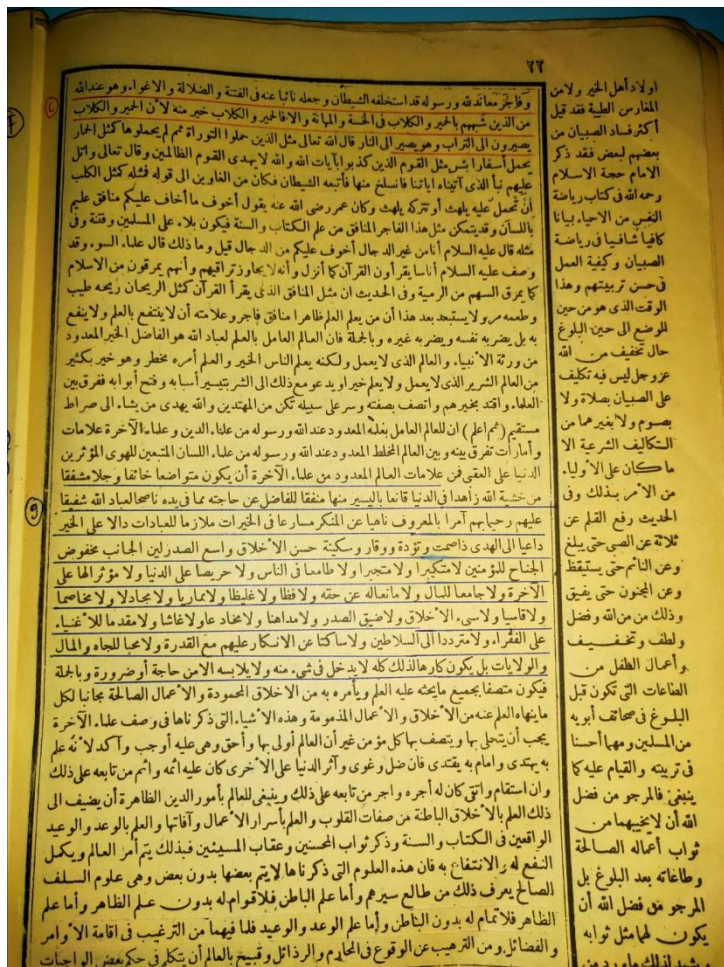 ٢٢
وفاجر معاند لله ورسوله قد استخلفه الشيطان وجعله نائبا عنه فى الفتنة والضلالة والاغواء. وهو عند الله
من الذين شبههم بالحمير والكلاب فى الخسة والمهانة والا فالحمير والكلاب خير منه لأن الحمير والكلاب
يصيرون الى التراب وهو يصير الى النار قال الله تعالى مثل الذين حملوا التوراة ثم لم يحملوها كمثل الحمار
يحمل أسفارا بئس مثل القوم الذين كذبوا بآيات الله والله لا يهدى القوم الظالمين وقال تعالى واتل
عليهم نبأ الذى آتيناه اياتنا فانسلخ منها فأتبعه الشيطان فكان من الغاوين الى قوله فمثله كمثل الكلب
ان تحمل عليه يلهث أو تتركه يلهث وكان عمر رضى الله عنه يقول أخوف ما أخاف عليكم منافق عليم
باللسان وقد يتمكن مثل هذا الفاجر المنافق من علم الكتاب والسنة فيكون بلاء على المسلمين وفتنة وفى
مثله قال عليه السلام أنا من غير الدجال أخوف عليكم من الدجال قيل وما ذلك قال علماء السوء وقد
وصف عليه السلام أناسا يقرأون القرآن كما أنزل وأنه لا يجاوز تراقيهم وأنهم يمرقون من الاسلام
كما يمرق السهم من الرمية وفى الحديث ان مثل المنافق الذى يقرأ القرآن كمثل الريحان ريحه طيب
وطعمه مر ولا يستبعد بعد هذا أن من يعلم العلم ظاهرا منافق فاجر وعلامته أن لا ينتفع بالعلم ولا ينفع
به بل يضر به نفسه ويضر به غيره وبالجملة فان العالم العامل بالعلم لعباد الله هو الفاضل الخير المعدود
من ورثة الانبياء. والعالم الذى لا يعمل ولكنه يعلم الناس الخير والعلم أمره مخطر وهو خير بكثير
من العالم الشرير الذى لا يعمل ولا يعلم خيرا ويدعو مع ذلك الى الشر بتيسير أسبابه وفتح أبوابه ففرق بين
العلماء. واقتد بخيرهم واتصف بصفته وسر على سبيله تكن من المهتدين والله يهدى من يشاء. الى صراط
مستقيم (ثم اعلم) ان للعالم العامل بعلمه المعدود عند الله ورسوله من علماء. الدين وعلماء. الآخرة علامات
وأمارات تفرق بينه وبين العالم المخلط المعدود عند الله ورسوله من علماء. اللسان المتبعين للهوى المؤثرين
الدنيا على العقبى فمن علامات العالم المعدود من علماء. الآخرة أن يكون متواضعا خائفا وجلا مشفقا
من خشية الله زاهدا فى الدنيا قانعا باليسير منها منفقا للفاضل عن حاجته مما فى يده ناصحا لعباد الله شفيقا
عليهم رحيما بهم آمرا بالمعروف ناهيا عن المنكر مسارعا فى الخيرات ملازما للعبادات دالا على الخير
داعيا الى الهدى ذا صمت وتؤدة ووقار وسكينة حسن الاخلاق واسع الصدر لين الجانب مخفوض
الجناح للمؤمنين لا متكبرا ولا متجبرا ولا طامعا فى الناس ولا حريصا على الدنيا ولا مؤثرا لها على
الآخرة ولا جامعا للمال ولا مانعا له عن حقه ولا فظا ولا غليظا ولا مماريا ولا مجادلا ولا مخاصما
ولا قاسيا ولا سيء. الاخلاق ولا ضيق الصدر ولا مداهنا ولا مخادعا ولا غاشا ولا مقدما للأغنياء.
على الفقراء. ولا مترددا الى السلاطين ولا ساكتا عن الانكار عليهم مع القدرة ولا محبا للجاه والمال
والولايات بل يكون كارها لذلك كله لا يدخل فى شيء. منه ولا يلابسه الا من حاجة أو ضرورة وبالجملة
فيكون متصفا بجميع ما يحثه عليه العلم ويأمره به من الاخلاق المحمودة والاعمال الصالحة مجانبا لكل
ما ينهاه العلم عنه من الأخلاق والاعمال المذمومة وهذه الاشياء. التى ذكرناها فى وصف علماء. الآخرة
يجب أن يتحلى بها ويتصف بها كل مؤمن غير أن العالم أولى بها وأحق وهى عليه أوجب وآكد لأنه علم
به يهتدى وامام به يقتدى فان ضل وغوى وآثر الدنيا على الاخرى كان عليه اثمه واثم من تابعه على ذلك
وان استقام واتقى كان له أجره واجر من تابعه على ذلك وينبغى للعالم بأمور الدين الظاهرة أن يضيف الى
ذلك العلم بالاخلاق الباطنة من صفات القلوب والعلم بأسرار الاعمال وآفاتها والعلم بالوعد والوعيد
الواقعين فى الكتاب والسنة وذكر ثواب المحسنين وعقاب المسيئين فبذلك يتم أمر العالم ويكمل
النفع له والانتفاع به فان هذه العلوم التى ذكرناها لا يتم بعضها بدون بعض وهى علوم السلف
الصالح يعرف ذلك من طالع سيرهم وأما علم الباطن فلا قوام له بدون علم الظاهر وأما علم
الظاهر فلا تمام له بدون الباطن وأما علم الوعد والوعيد فلما فيهما من الترغيب فى اقامة الاوامر
والفضائل ومن الترهيب عن الوقوع فى المحارم والرذائل وقبيح بالعالم أن يتكلم فى حكم بعض الواجبات
اولاد أهل الخير ولا من
المغارس الطيبة فقد قيل
أكثر فساد الصبيان من
بعضهم لبعض فقد ذكر
الامام حجة الاسلام
رحمه الله فى كتاب رياضة
النفس من الاحياء بيانا
كافيا شافيا فى رياضة
الصبيان وكيفية العمل
فى حسن تربيتهم وهذا
الوقت الذى هو من حين
الوضع الى حين البلوغ
حال تخفيف من الله
عز وجل ليس فيه تكليف
على الصبيان بصلاة ولا
بصوم ولا بغيرهما من
التكاليف الشرعية الا
ما كان على الأولياء.
من الأمر بذلك وفى
الحديث رفع القلم عن
ثلاثة عن الصبى حتى يبلغ
وعن النائم حتى يستيقظ
وعن المجنون حتى يفيق
وذلك من من الله وفضل
ولطف وتخفيف
وأعمال الطفل من
الطاعات التى تكون قبل
البلوغ فى صحائف أبويه
من المسلمين ومهما أحسنا
فى تربيته والقيام عليه كما
ينبغى فالمرجو من فضل
الله أن لا يخيبهما من
ثواب أعماله الصالحة
وطاعاته بعد البلوغ بل
المرجو من فضل الله أن
يكون لهما مثل ثوابه